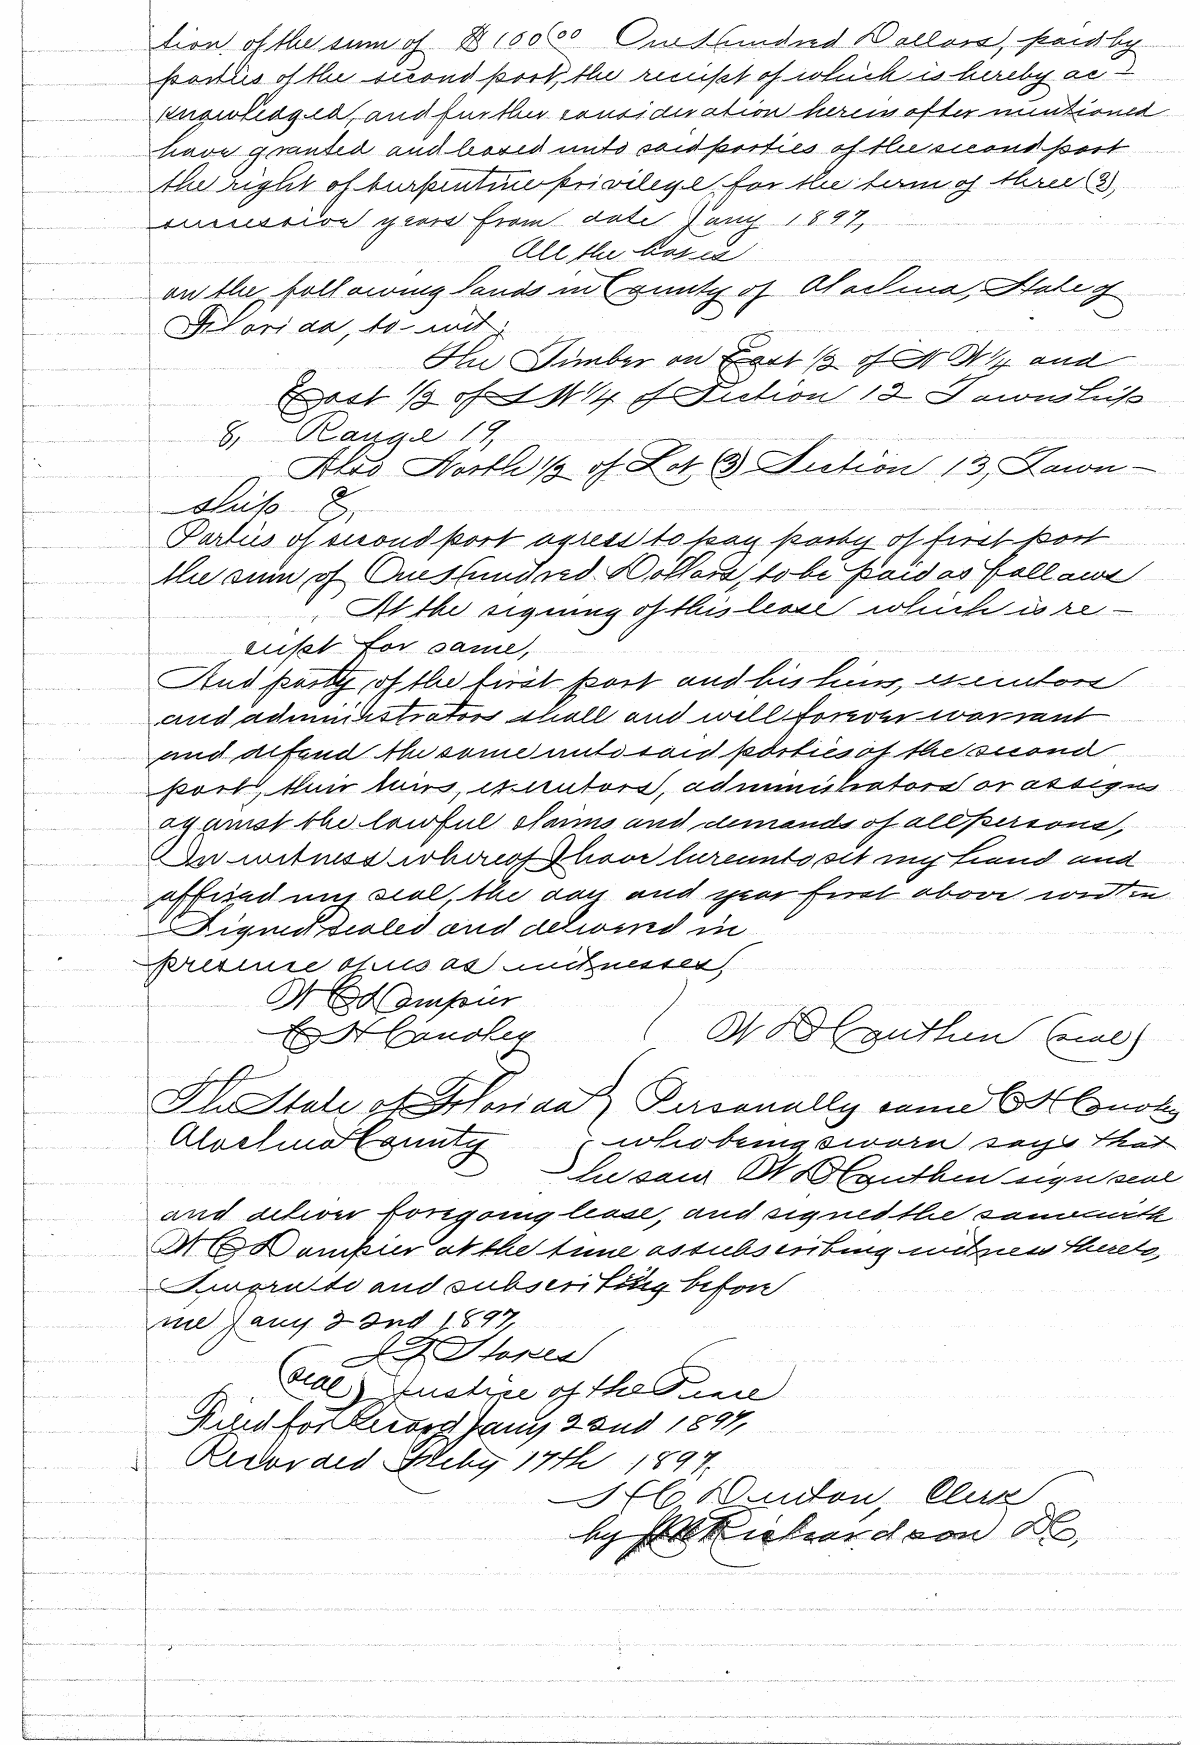 tion of the sum of $100.00 One Hundred Dollars, paid by
parties of the second part, the receipt of which is hereby ac-
knowledged, and further consideration herein after mentioned
have granted and leased unto said parties of the second part
the right of turpentine privilege for the term of three (3),
successive years from date Jany 1897,
All the boxes
on the following lands in County of Alachua, State of
Florida, to-wit;
The Timber on East 1/2 of N W 1/4 and
East 1/2 of S W 1/4 of Section 12 Township
8, Range 19,
Also North 1/2 of Lot (3) Section 13, Town-
ship 8,
Parties of second part agrees to pay party of first part
the sum of One Hundred Dollars, to be paid as follows
At the signing of this lease which is re-
ceipt for same,
And party of the first part and his heirs, executors
and administrators shall and will forever warrant
and defend the same unto said parties of the second
part, their heirs, executors, administrators or assigns
against the lawful claims and demands of all persons,
In witness whereof I have hereunto set my hand and
affixed my seal, the day and year first above written
Signed sealed and delivered in
presence of us as witnesses,
W C Dampier
E H Canoley
W D Cauthen (seal)
The State of Florida } Personally came E H Canoley
Alachua County who being sworn says that
he saw W D Cauthen sign seal
and deliver foregoing lease, and signed the same with
W C Dampier at the time as subscribing witness thereto,
Sworn to and subscribing before
me Jany 22nd 1897,
Stokes
(seal) Justice of the Peace
Filed for Record Jany 22nd 1897,
Recorded Feby 17th 1897.
H C Denton, Clerk
by Richardson DC,